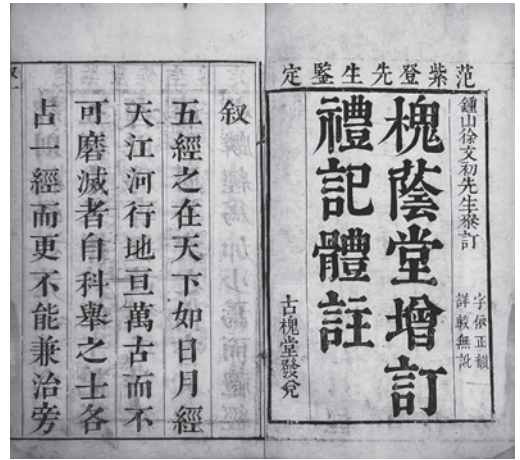 范紫登先生鑒定
鍾山徐文初先生叅訂
槐蔭堂增訂
禮記體註
字依正韻
詳較無訛
古槐堂發兌
叙
五經之在天下如日月經
天江河行地亘萬古而不
可磨滅者自科舉之士各
占一經而更不能兼治旁